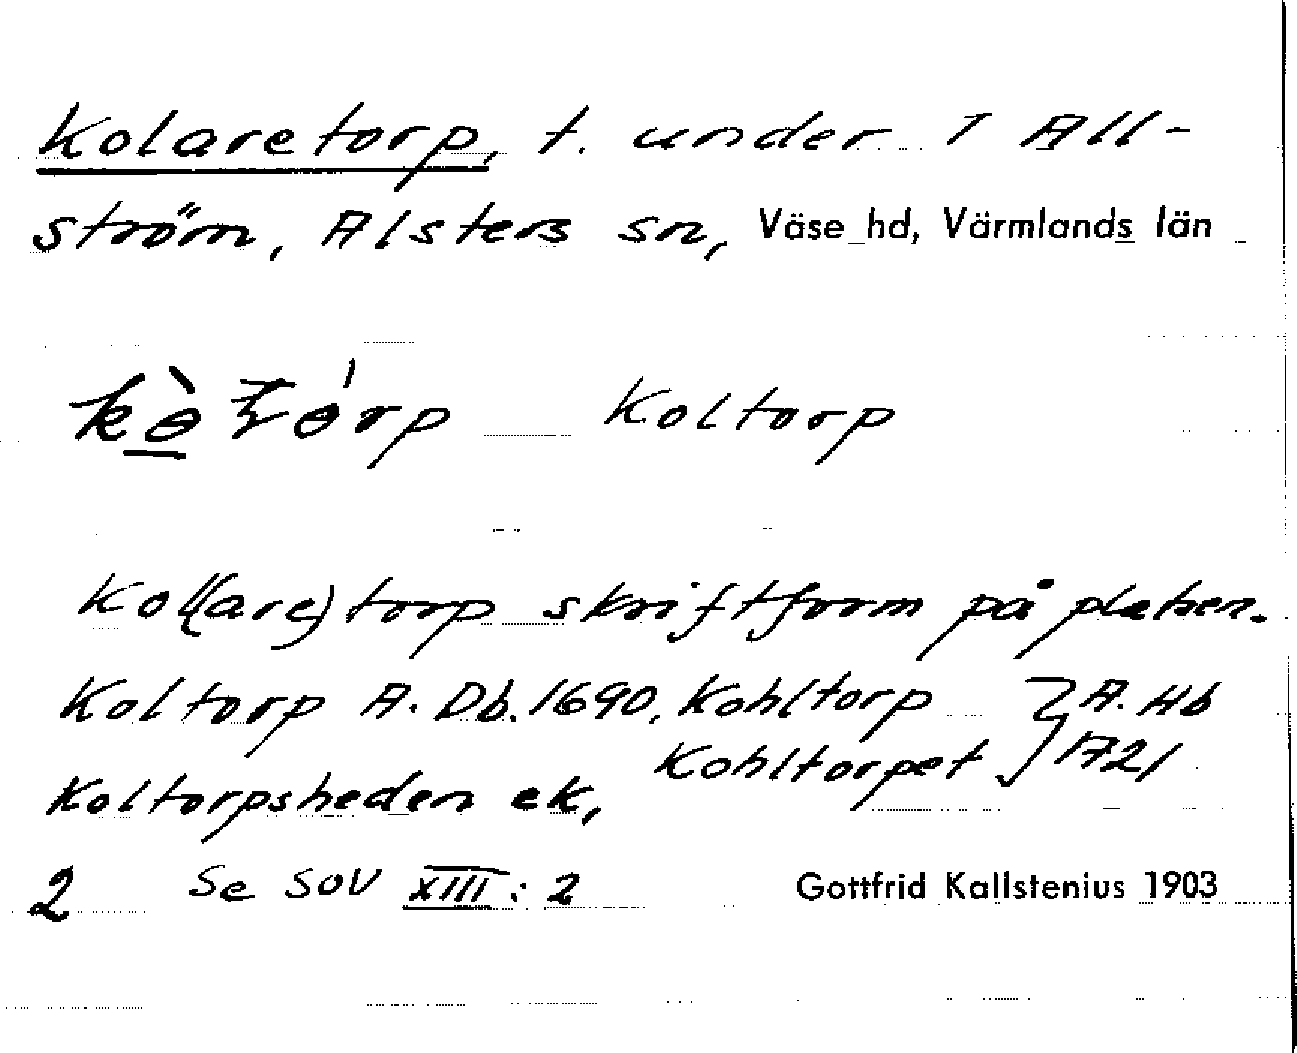 Kolaretorp, t. under 1 All-
ström, Alsters sn, Väse hd, Värmlands län
Koltorp
Kol(are)torp skriftform på platsen.
Koltorp A. Db. 1690, Kohltorp } A. Hb
Koltorpsheden ek, Kohltorpet } 1721
2 Se SOV XIII: 2 Gottfrid Kallstenius 1903